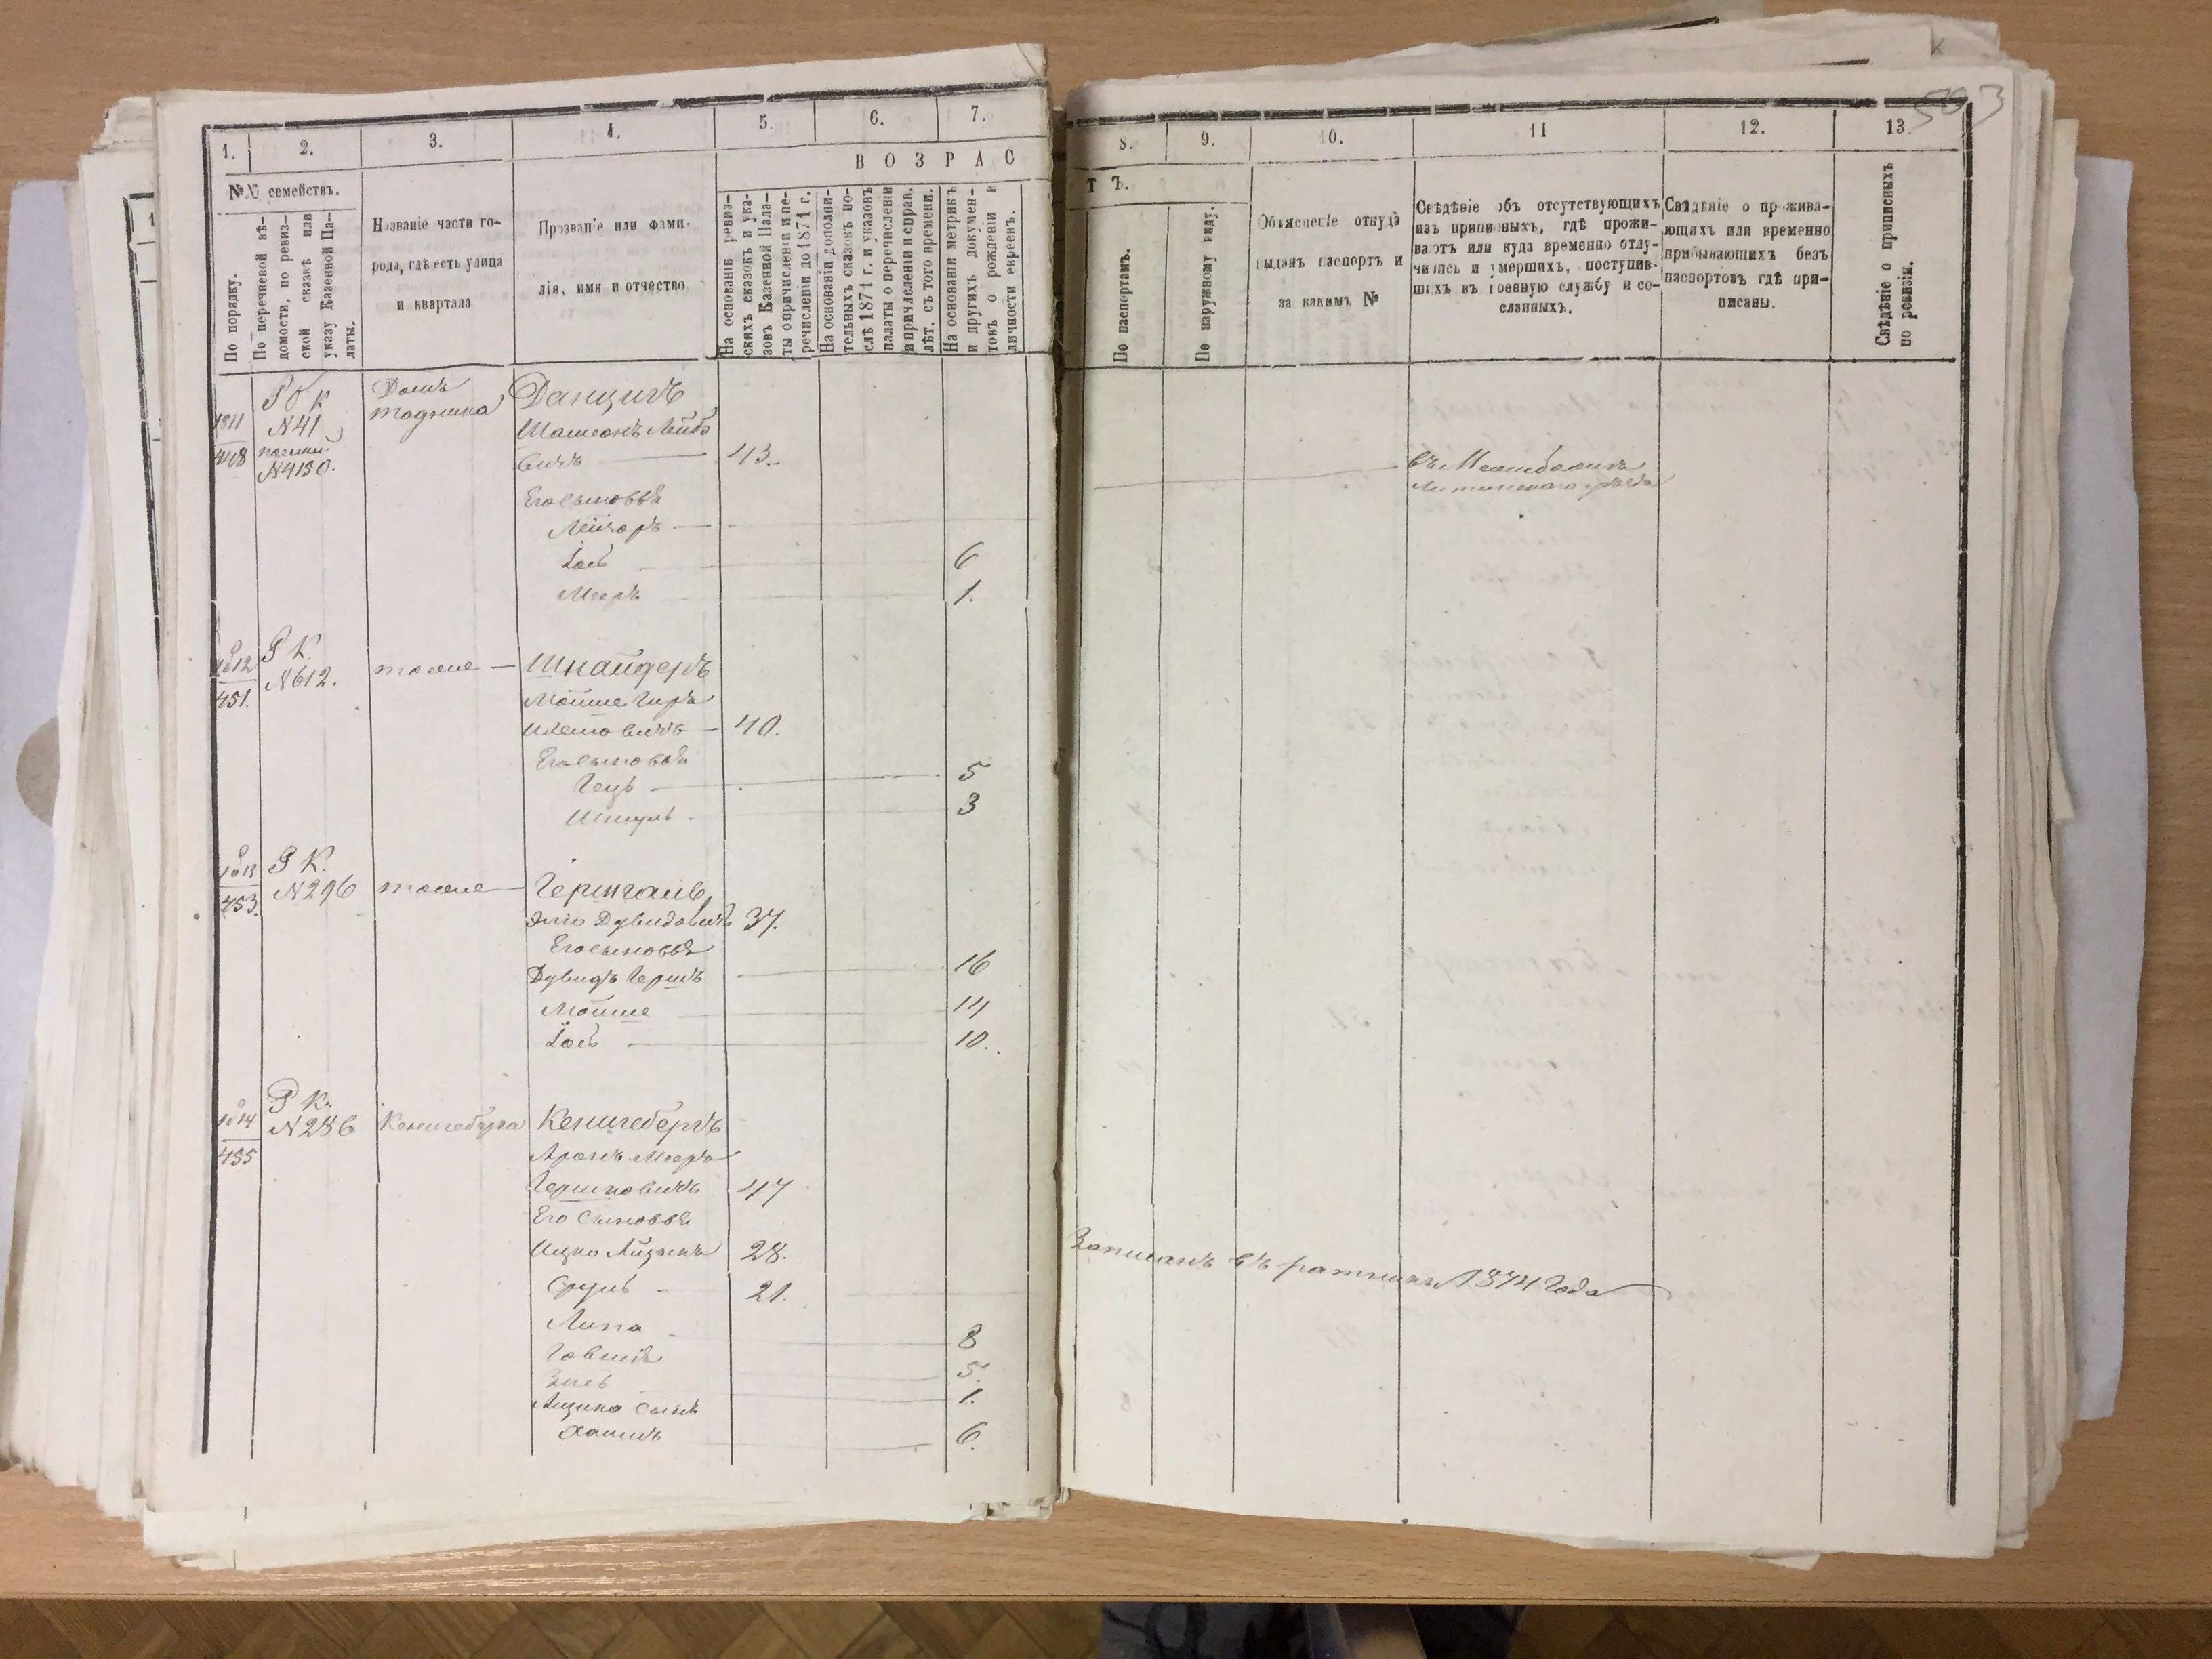 503
1.
2.
3.
4.
5.
6.
7.
8.
9.
10.
11
12.
13.
ВОЗРАС
ТЪ.
№№ семействъ.
По порядку.
По перечневой вѣ-
домости, по ревиз-
ской сказкѣ или
указу Казенной Па-
латы.
Названіе части го-
рода, гдѣ есть улица
и квартала
Прозваніе или фами-
лія, имя и отчество.
На основаніи ревиз-
скихъ сказокъ и ука-
зовъ Казенной Пала-
ты о причисленіи и пе-
речисленіи до 1871 г.
На основаніи дополни-
тельныхъ сказокъ по-
слѣ 1871 г. и указовъ
палаты о перечисленіи
и причисленіи и справ.
лѣт. съ того времени.
На основаніи метрикъ
и другихъ докумен-
товъ о рожденіи и
личности евреевъ.
По паспортамъ.
По наружному виду.
Объясненіе откуда
выданъ паспортъ и
за какимъ №
Свѣдѣніе объ отсутствующихъ
изъ приписныхъ, гдѣ прожи-
ваютъ или куда временно отлу-
чились и умершихъ, поступив-
шихъ въ военную службу и со-
сланныхъ.
Свѣдѣніе о прожива-
ющихъ или временно
прибывающихъ безъ
паспортовъ гдѣ при-
писаны.
Свѣдѣніе о приписныхъ
по ревизіи.
1811
448
Р К
N 41
N 4130.
Домъ
Данцигъ
Шамсонъ Лейбо
вичъ 43.
въ
Его сыновья
Лейзоръ
Іось 6
Мееръ 1.
1812
451.
Р К.
N 612.
тоже Шнайдеръ
Мойше Гирш
вичъ 40.
Его сыновья
Гецъ 5
Шмуль 3
1813
453.
Р К.
N 296
тоже
Эліо Дувидовичъ 37.
Его сыновья
Дувидъ Гершъ 16
Мойше 14
Іось 10.
1814
455
Р К.
N 286
Кенигсберга Кенигсбергъ
Аронъ Мееръ
Гершковичъ 47
Его сыновья
Ицко Айзыкъ 28.
Сруль 21.
Записанъ въ 1874 года
Липа 8
Говшія 5.
Зись 1.
Ицика сынъ
Хаимъ 6.